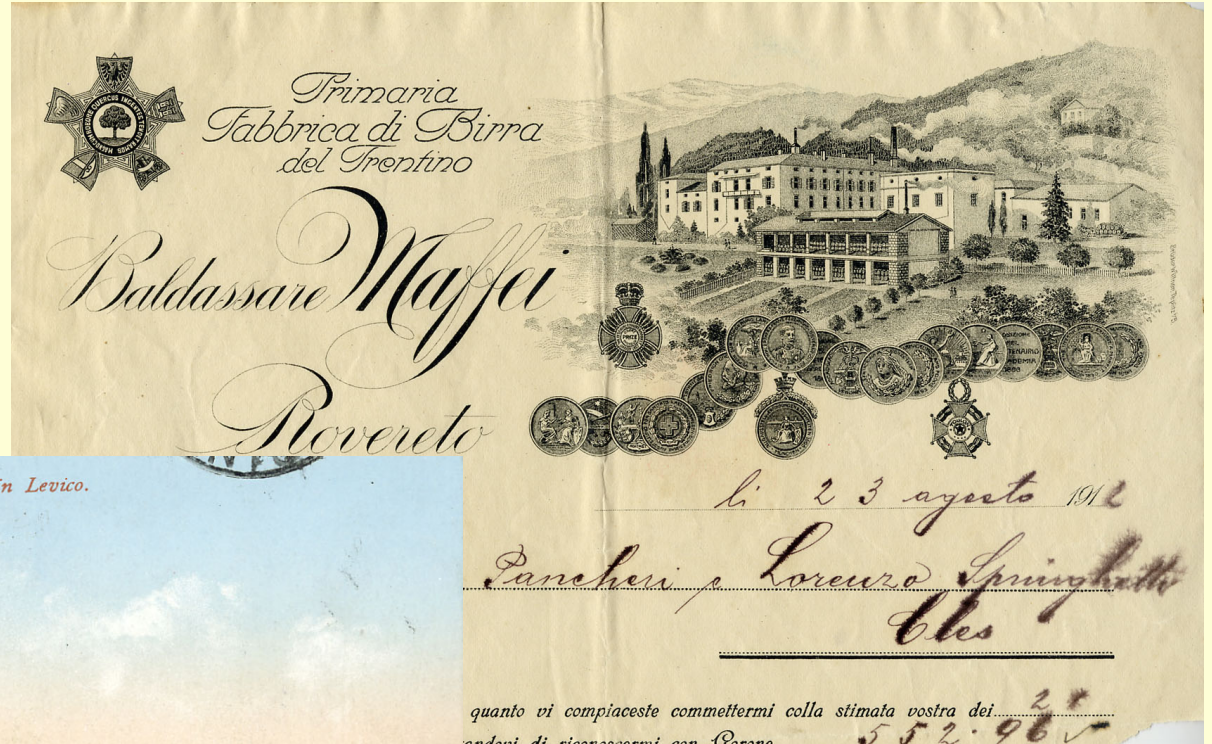 Primaria
Fabbrica di Birra
del Trentino
Baldassare Maffei
Rovereto
in Levico.
li 23 agosto 1912
Pancheri e Lorenzo Springhetti
Cles
quanto vi compiaceste commettermi colla stimata vostra dei
di riconoscermi con Corone 552.96